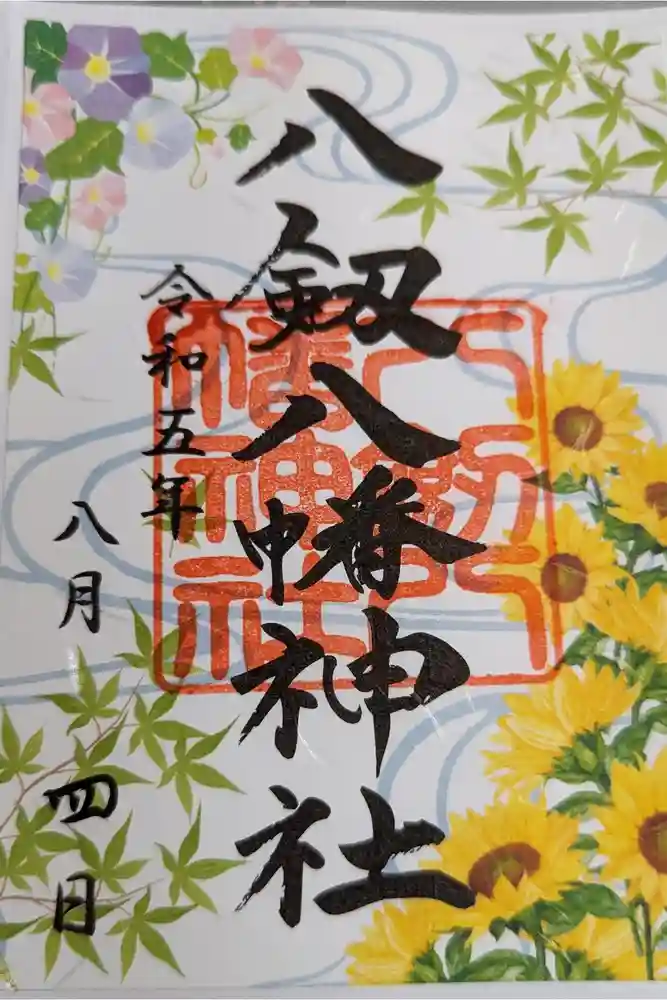 八劔八幡神社
令和五年
八月四日
八劔八幡神社